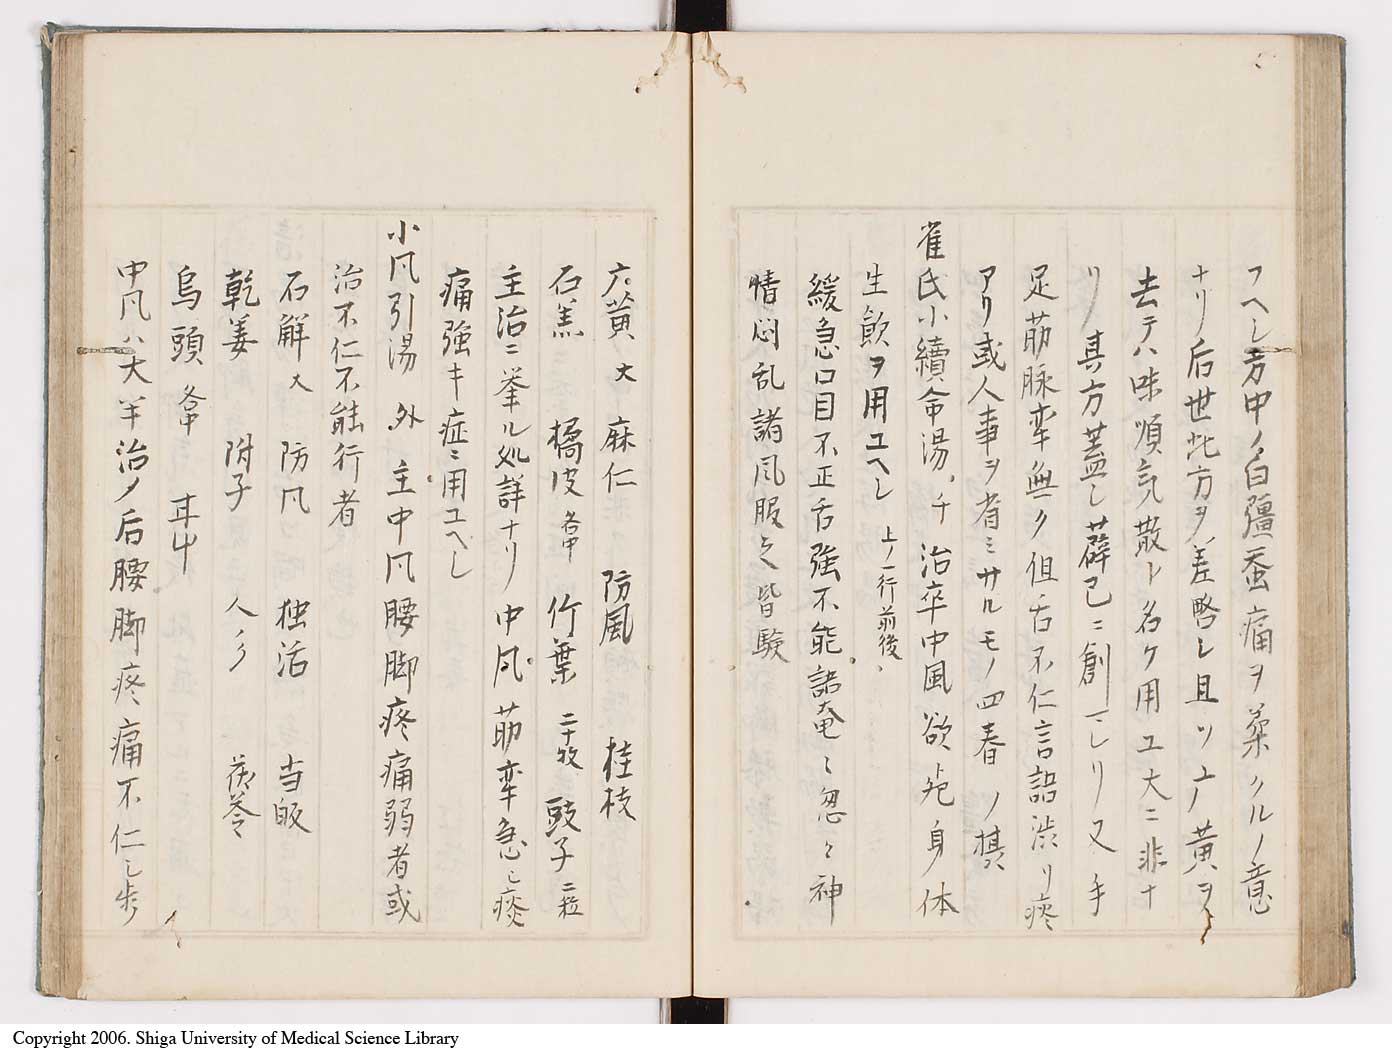 フヘシ方中ノ白彊蚕痛ヲ柔クルノ意
ナリ后世此方ヲ差略シ且ツ广黄ヲ
去テハ味順氣散ト名ケ用ユ大ニ非ナ
リ其方蓋シ薛己ニ創マレリ又手
足筋脉牽無ク但舌不仁言語渋リ痰
アリ或人事ヲ省ミサルモノ四春ノ
崔氏小續命湯千治卒中風欲死身体
生歛ヲ用ユヘシ上ノ一行前後、
緩急口目不正舌強不能語奄々忽々神
情悶乱諸風服之皆驗
广黄大 麻仁 防風 桂枝
石羔 橘皮各中 竹葉二十枚 豉子二粒
主治ニ挙ル処詳ナリ中風筋牽急シ痰
痛強キ症ニ用ユヘシ
小凤引湯 外 主中凤腰脚疼痛弱者或
治不仁不能行者
石斛大 防凤 独活 当皈
乾姜 附子 人 茯苓
烏頭各中 甘中
中凤ハ大半治ノ后腰脚疼痛不仁シ歩